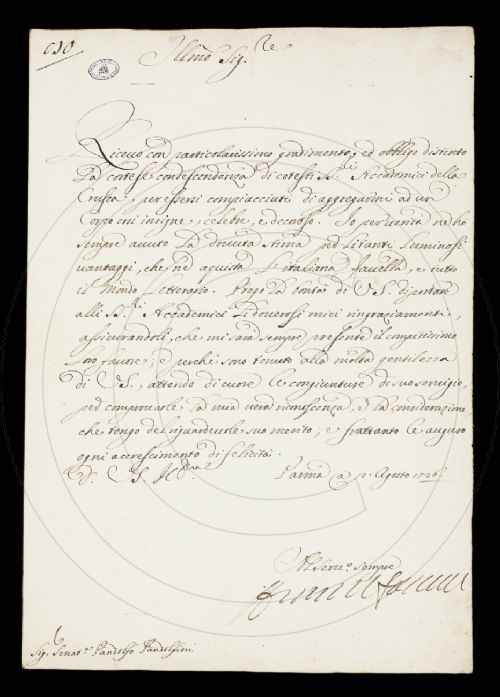 Illmo Sig.re
Ricevo con particolarissimo gradimento, ed obbligo distinto
la cortese condescendenza di cotesti SS.ri Accademici della
Crusca, per essersi compiacciuti di aggregarmi ad un
Corpo così insigne, celebre, e decoroso. Io per verità ne hò
sempre avuto la dovuta stima per li tanti luminosi
vantaggi, che nè acquista l'italiana favella, e tutto
il Mondo Letterario. Prego la bontà di V.S. di portare
alli SS.ri Accademici li doverosi miei ringraziamenti,
assicurandoli, che mi sarà sempre presente il compitissimo
loro favore; e perchè sono tenuto alla molta gentilezza
di V.S., attendo di cuore le congiunture di suo servigio,
per comprovarle la mia vera riconoscenza, e la considerazione
che tengo del riguardevole suo merito; e frattanto le auguro
ogni accrescimento di felicità.
D. V.S. Ill.ma Parma @ Agosto
Al Serv.o sempre
Sig. Senat.e Pandolfo Pandolfini